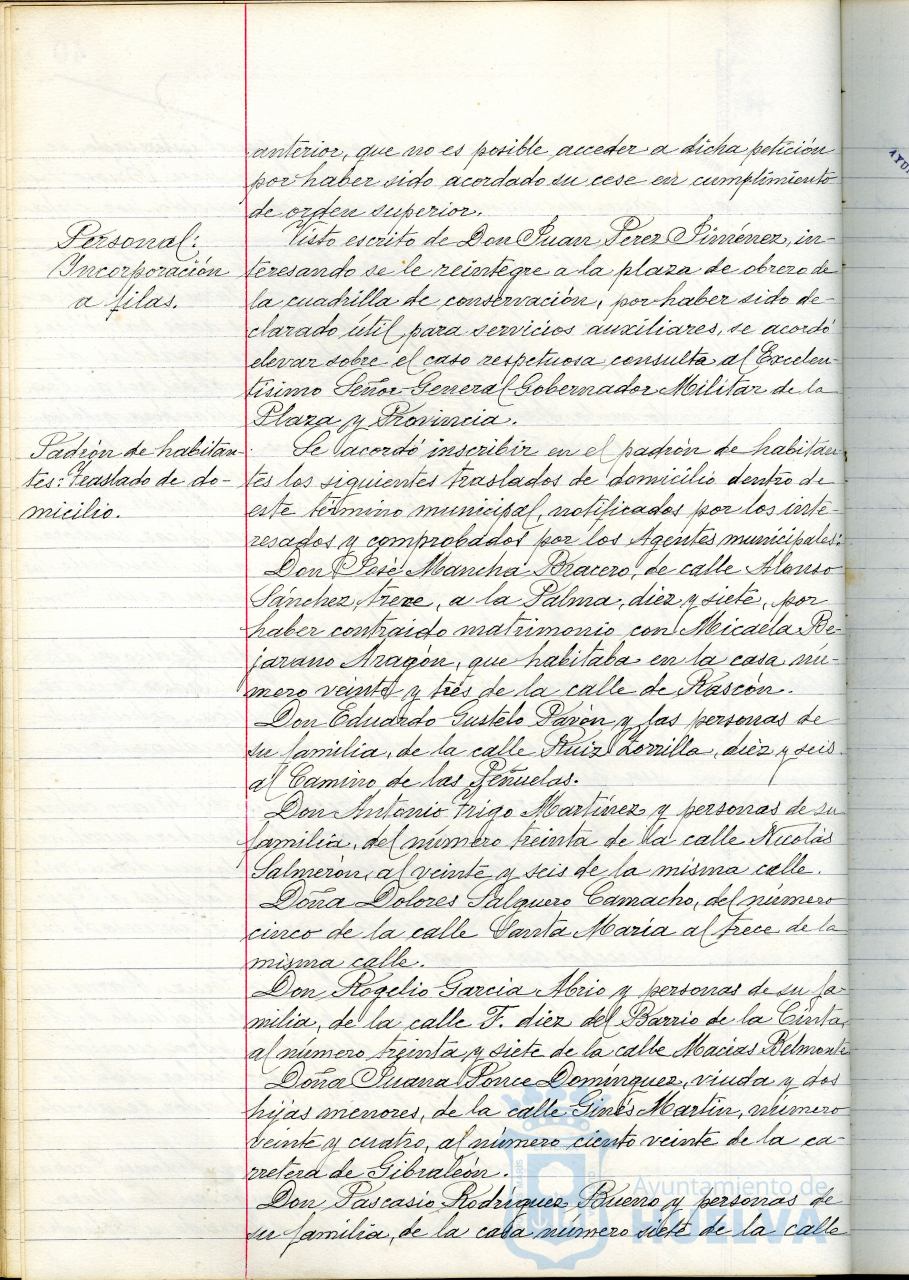 anterior, que no es posible acceder a dicha petición
por haber sido acordado su cese en cumplimiento
de orden superior.
Personal:
Incorporación
a filas.
Visto escrito de Don Juan Perez Jiménez, in-
teresando se le reintegre a la plaza de obrero de
la cuadrilla de conservación, por haber sido de-
clarado útil para servicios auxiliares, se acordó
elevar sobre el caso respetuosa consulta al Excelen-
tísimo Señor General Gobernador Militar de la
Plaza y Provincia.
Padrón de habitan-
tes: Traslado de do-
micilio.
Se acordó inscribir en el padrón de habitan-
tes los siguientes traslados de domicilio dentro de
este término municipal, notificados por los inte-
resados y comprobados por los Agentes municipales:
Don José Mancha Bracero, de calle Alonso
Sánchez, trece, a la Palma, diez y siete, por
haber contraido matrimonio con Micaela Be-
jarano Aragón, que habitaba en la casa nú-
mero veinte y tres de la calle de Rascón.
Don Eduardo Gustelo Pavón y las personas de
su familia, de la calle Ruiz Zorrilla, diez y seis
al Camino de las Peñuelas.
Don Antonio Trigo Martínez y personas de su
familia, del número treinta de la calle Nicolás
Salmerón, al veinte y seis de la misma calle.
Doña Dolores Salguero Camacho, del número
cinco de la calle Santa María al trece de la
misma calle.
Don Rogelio Garcia Abrio y personas de su fa-
milia, de la calle F. diez del Barrio de la Cinta,
al número treinta y siete de la calle Macías Belmonte
Doña Juana Ponce Domínguez, viuda y dos
hijas menores, de la calle Ginés Martín, número
veinte y cuatro, al número ciento veinte de la ca-
rretera de Gibraleón.
Don Pascasio Rodríguez Bueno y personas de
su familia, de la casa número siete de la calle
Ayuntamiento de
HUELVA